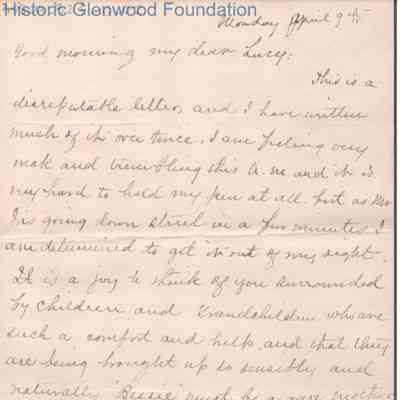 Historic Glenwood Foundation
Monday April 9th
Good morning my dear Lucy:
This is a
disreputable letter, and I have written
much of it over twice. I am feeling very
weak and trembling this A.M and it is
very hard to hold my pen at all. but as
I is going down street in a few minutes I
am determined to get it out of my sight.
It is a joy to think of you surrounded
by children and Grandchildren who are
such a comfort and help, and that they
are being brought up so sensibly and
naturally Bessie must be a rare mother